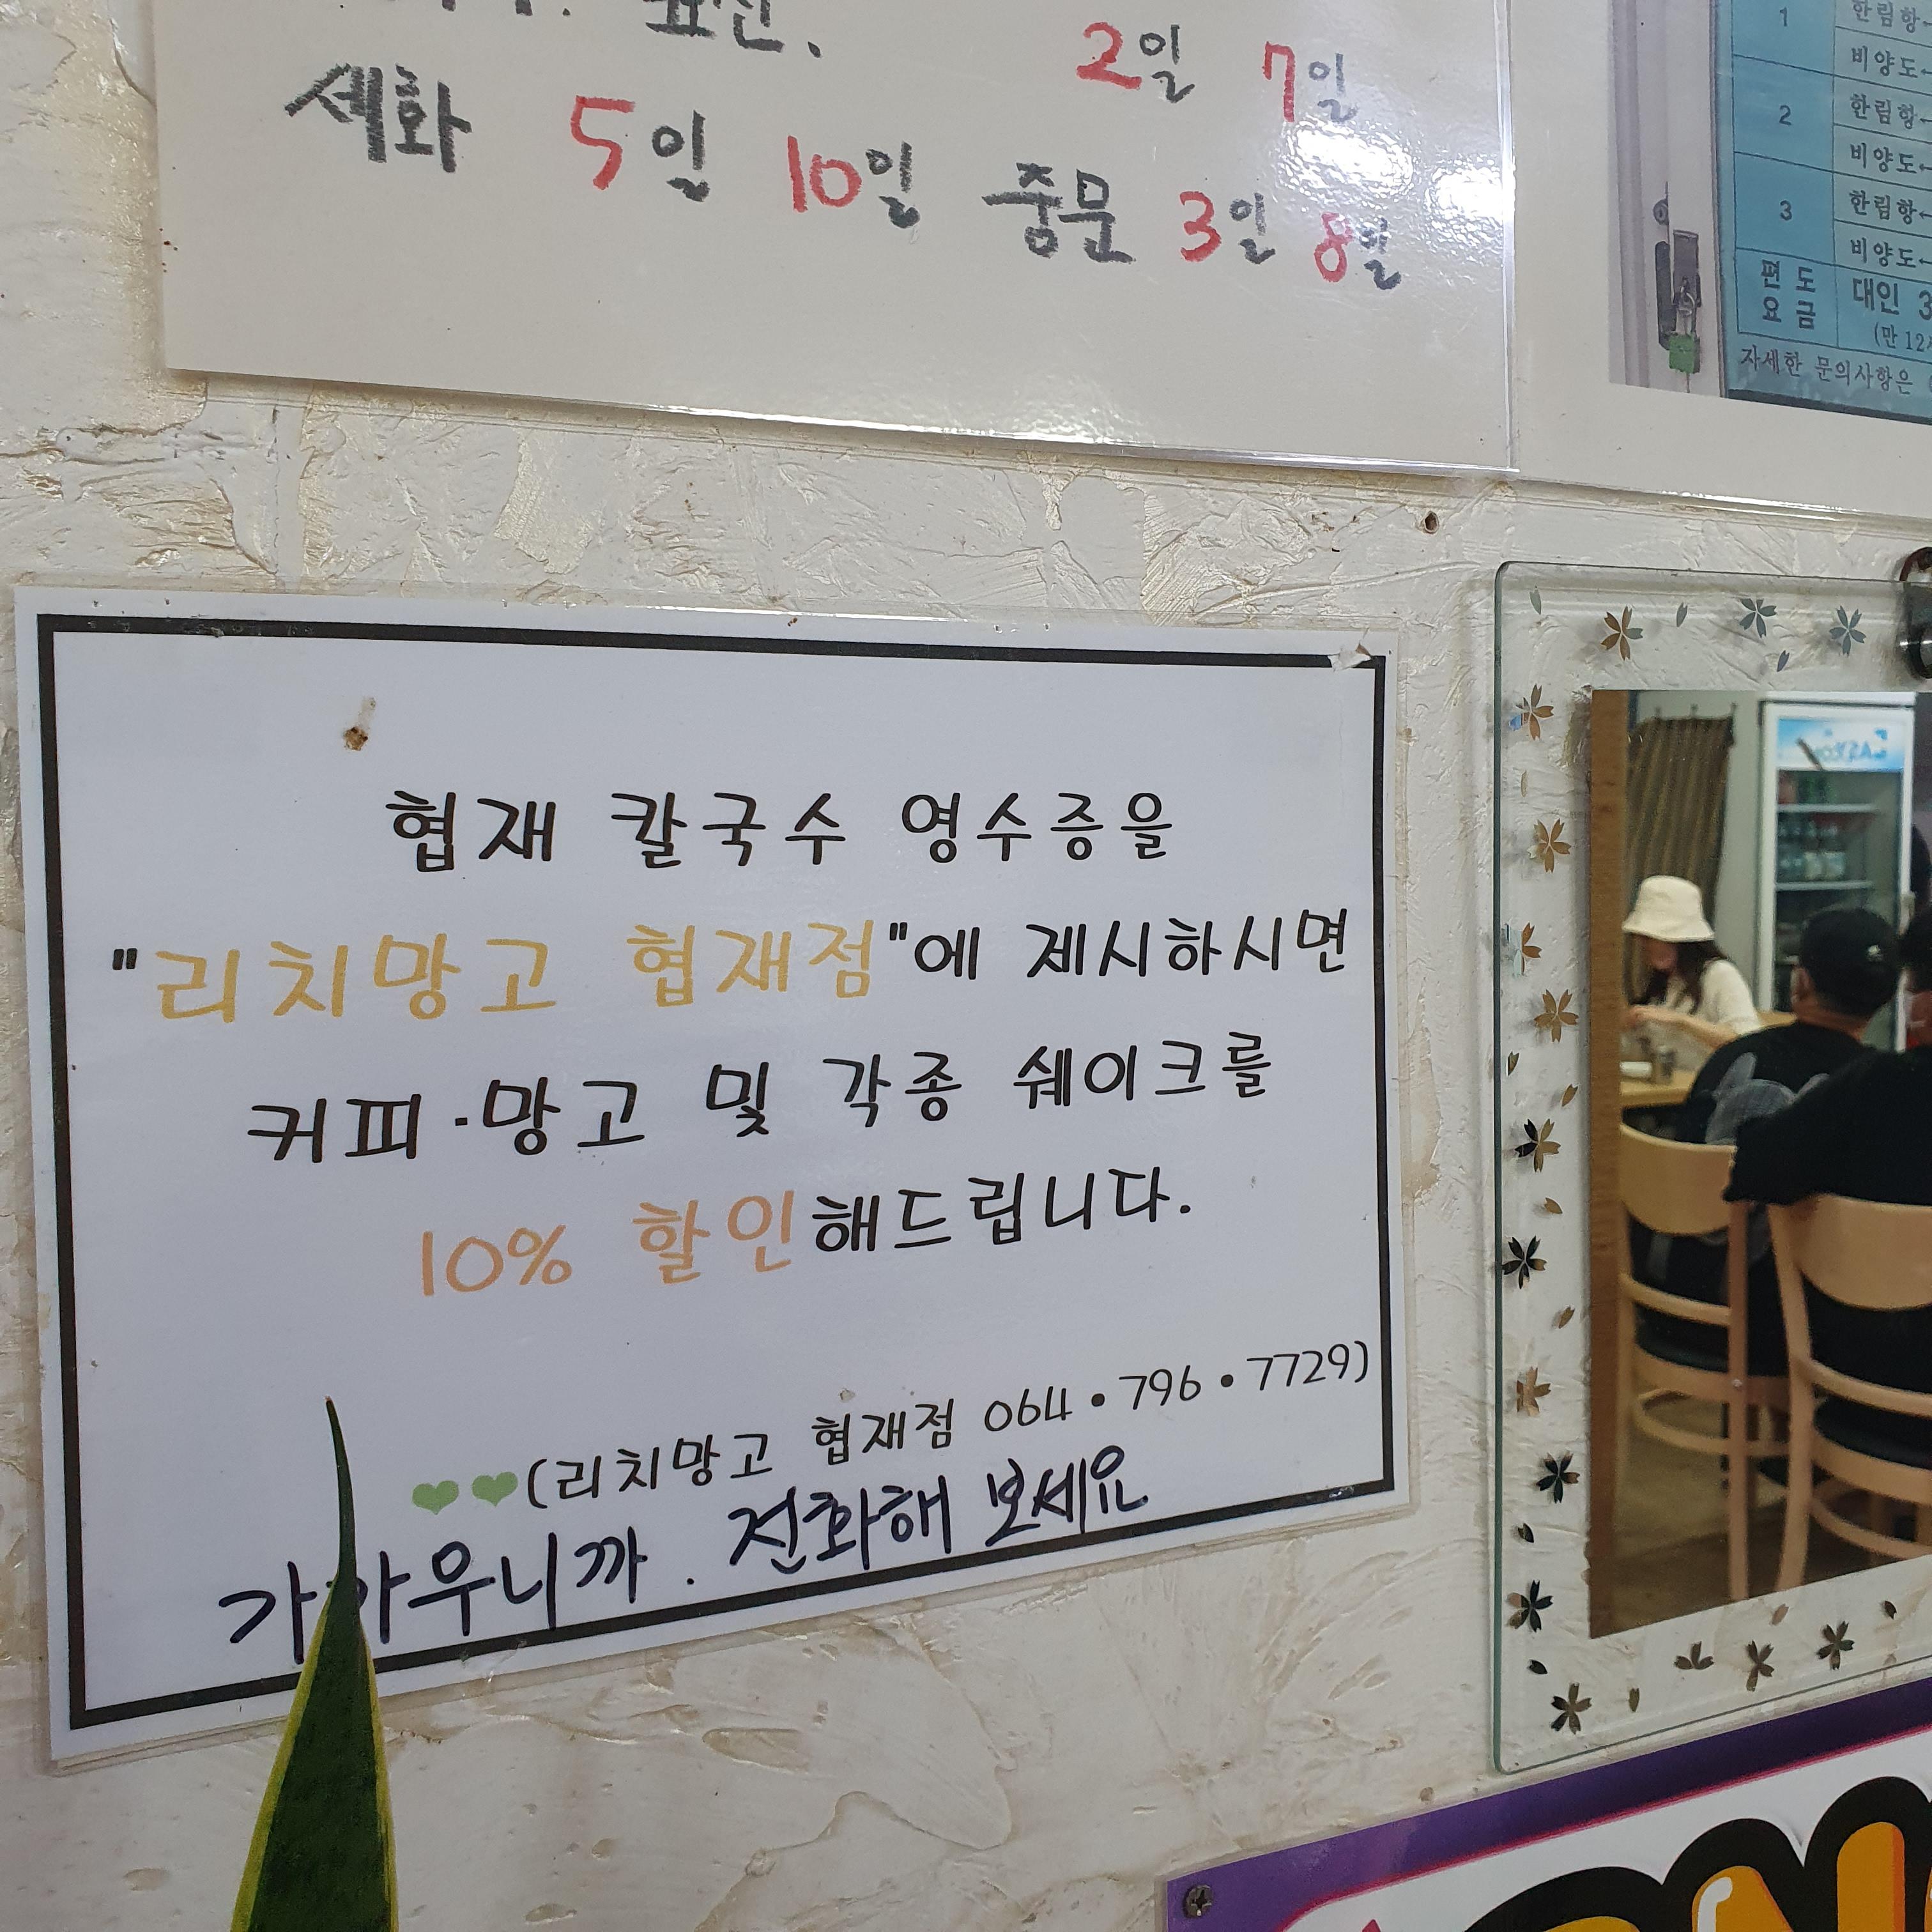 2일 7일
세화 5일 10일 중문 3일 8일
1 한림항
비양도
2 한림항
비양도
3 한림항
비양도
편도 요금 대인
(만 12
자세한 문의사항은
협재 칼국수 영수증을
"리치망고 협재점"에 제시하시면
커피·망고 및 각종 쉐이크를
10% 할인해드립니다.
(리치망고 협재점 064·796·7729)
우니까. 전화해 보세요